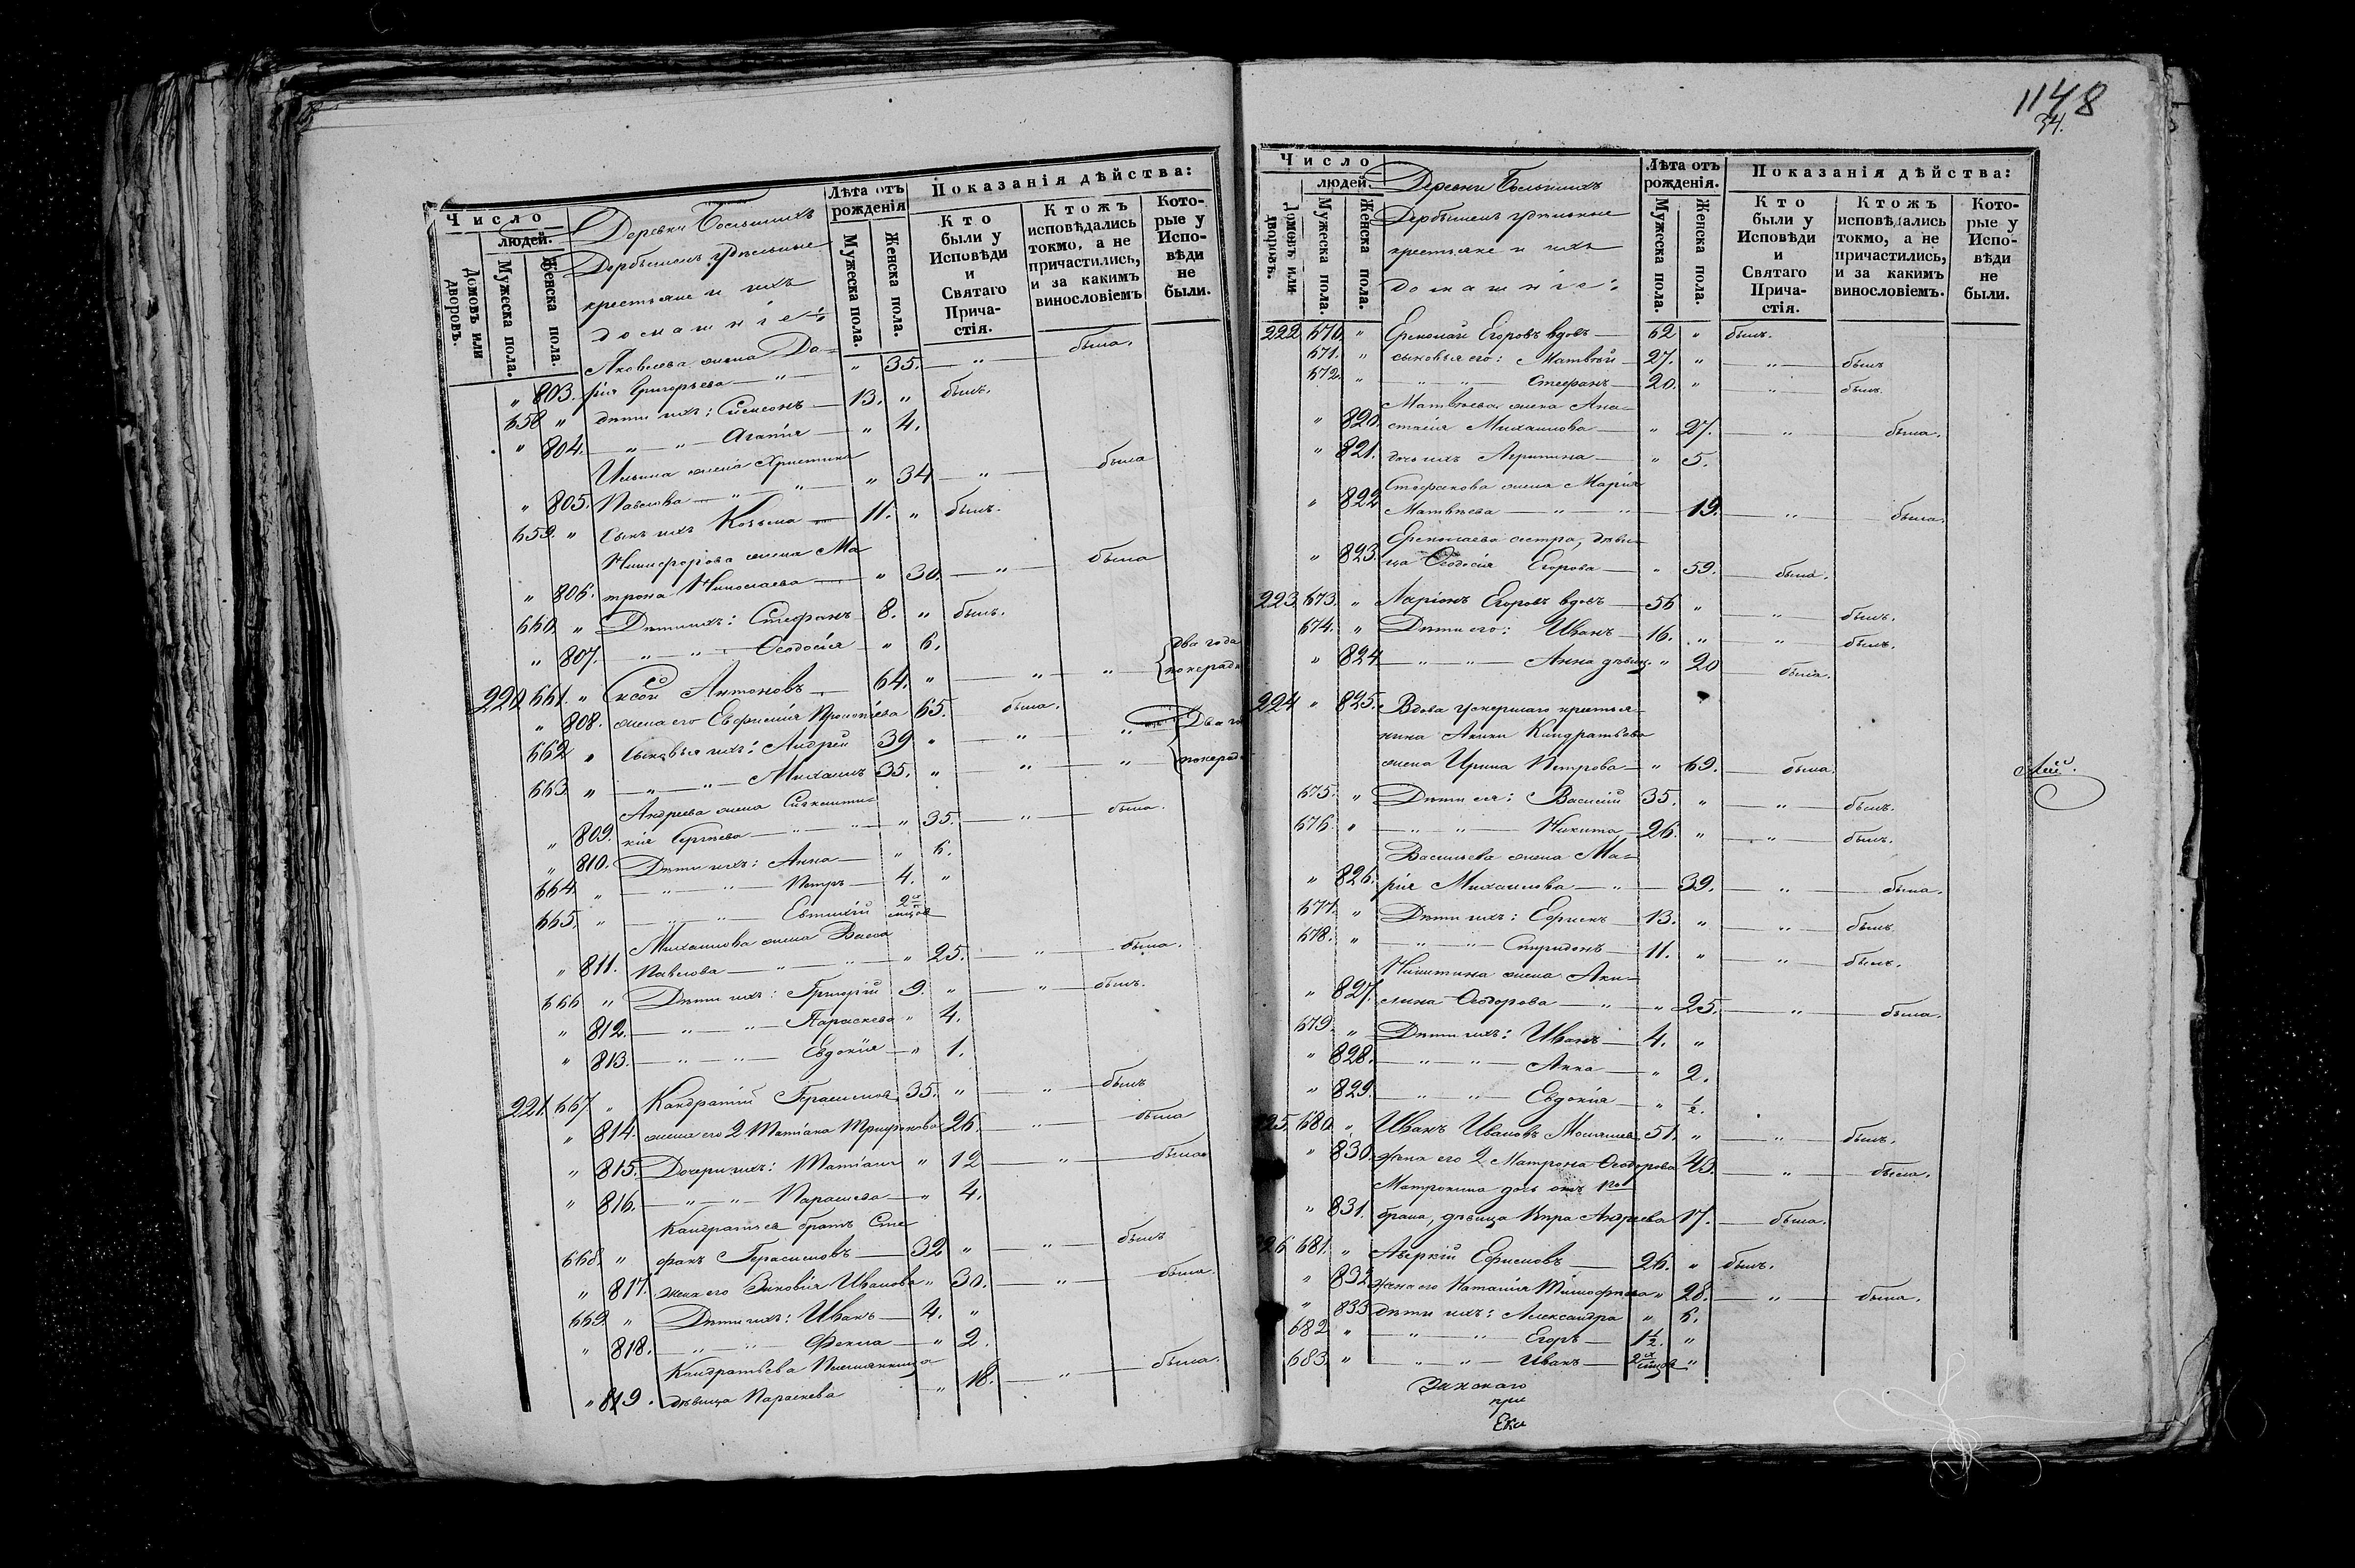 Число
людей.
Домовъ или дворовъ.
Мужеска пола.
Женска пола.
Деревни Большихъ
Дербышекъ удѣльные
крестьяне и ихъ
домашніе:
Лѣта отъ рожденія
Мужеска пола.
Женска пола.
Показанія дѣйства:
Кто были у Исповѣди и Святаго Причастія.
Ктожъ исповѣдались токмо, а не причастились, и за какимъ винословіемъ
Которые у Исповѣди не были.
Яковлева жена Да-
" 803. рія Григорьева — " — " 35. — " — была.
658 " дѣти ихъ: Симеонъ — 13. " былъ.
" 804. — " — " — Агапія — " 4.
Ильина жена Христина
" 805. Павлова — " — " — " 34 — " — была
659. " Сынъ ихъ Козьма — 11. " былъ.
Никифорова жена Ма
" 806. трона Николаева — " 30. — " — была
660. " Дѣти ихъ: Стефанъ 8. " былъ.
" 807. — " — " — Ѳеодосія — " 6.
220 661. " Антоновъ — 64. " — " — " два года
808. жена его Евфимія Прокопіева 65. была.
662 " сыновья ихъ: Андрей 39 " — " — " Два
663. " — " — " — Михаилъ 35. " — " — "
Андреева жена
" 809. Сергѣева — " — " — " 35. — " — была.
" 810. Дѣти ихъ: Анна — " 6.
664. " — " — " — Петръ — 4. "
665. " — " — " — Евтихій 2хъ
Михаилова жена Васса
" 811. Павлова — " — " — " 25. — " — была.
666 " Дѣти ихъ: Григорій 9. " — " — былъ.
" 812. — " — " — Параскева " 4.
" 813. — " — " — Евдокія — " 1.
221. 667 " Кандратій Герасимовъ 35. " — " — былъ
" 814. жена его 2 Татіана Трифонова 26. — " — была
" 815. Дочери ихъ: Татіана " 12 — " — была
" 816. — " — " — Параскева — " 4.
Кандратьевъ братъ Сте
668. " фанъ Герасимовъ — 32 " — " — былъ
" 817. жена его Зиновія Иванова " 30. — " — была.
669. " Дѣти ихъ: Иванъ — 4. "
" 818. — " — " — Фекла — " 2.
Кандратьева Племянница
" 819. дѣвица Параскева " 18. — " — была.
1148
34.
Число
людей.
Домовъ или дворовъ.
Мужеска пола.
Женска пола.
Деревни Большихъ
Дербышекъ удѣльные
крестьяне и ихъ
домашніе:
Лѣта отъ рожденія.
Мужеска пола.
Женска пола.
Показанія дѣйства:
Кто были у Исповѣди и Святаго Причастія.
Ктожъ исповѣдались токмо, а не причастились, и за какимъ винословіемъ.
Которые у Исповѣди не были.
222 670. " Ермолай Егоровъ вдовъ — 62 " былъ.
671. " сыновья его: Матвѣй — 27. " — " — былъ
672. " — " — " — Стефанъ — 20. " — " — былъ.
Матвѣева жена Ана-
" 820. стасія Михаилова — " 27. — " — была.
" 821. дочь ихъ Агрипина — " 5.
Стефанова жена Марія
" 822 Матвѣева — " — " — 19. — " — была.
Ермолаева сестра, дѣви-
" 823. ца Ѳеодосія Егорова — " 59. — была.
223. 673. " Ларіонъ Егоровъ вдовъ — 56 " — " — былъ.
674. " Дѣти его: Иванъ — 16. " — " — былъ.
" 824 — " — " — Анна дѣвиц. " 20 — была.
224 " 825. Вдова умершаго крестья-
нина Акима Кандратьева
жена Ирина Петрова — " 69. — была.
675. " Дѣти ея: Василій 35. " — " — былъ.
676. " — " — " — Никита — 26. " — " — былъ.
Васильева жена Ма-
" 826. рія Михаилова — " — 39. — " — была.
677. " Дѣти ихъ: Ефимъ — 13. " — " — былъ
678. " — " — " — Спиридонъ — 11. " — " — былъ.
Никитина жена Аку-
" 827. лина Ѳеодорова — " — " 25. — " — была.
679. " Дѣти ихъ: Иванъ — 4. "
" 828. — " — " — Анна — " 2.
" 829. — " — " — Евдокія — " ½.
25. 680. " Иванъ Ивановъ 51. " — " — былъ.
" 830. жена его 2 Матрона Ѳеодорова 43. — " — была.
Матронина дочь отъ 1го
" 831. брака, дѣвица Вѣра Андреева 17. — была.
26 681. " Аверкій Ефимовъ — 26. " былъ.
" 832. жена его Наталія Тимофеева " 28. — " — была.
" 833 дѣти ихъ: Александра " 6.
682 " — " — " — Егоръ — 1½. "
683. " — " — " — Иванъ — 2хъ "